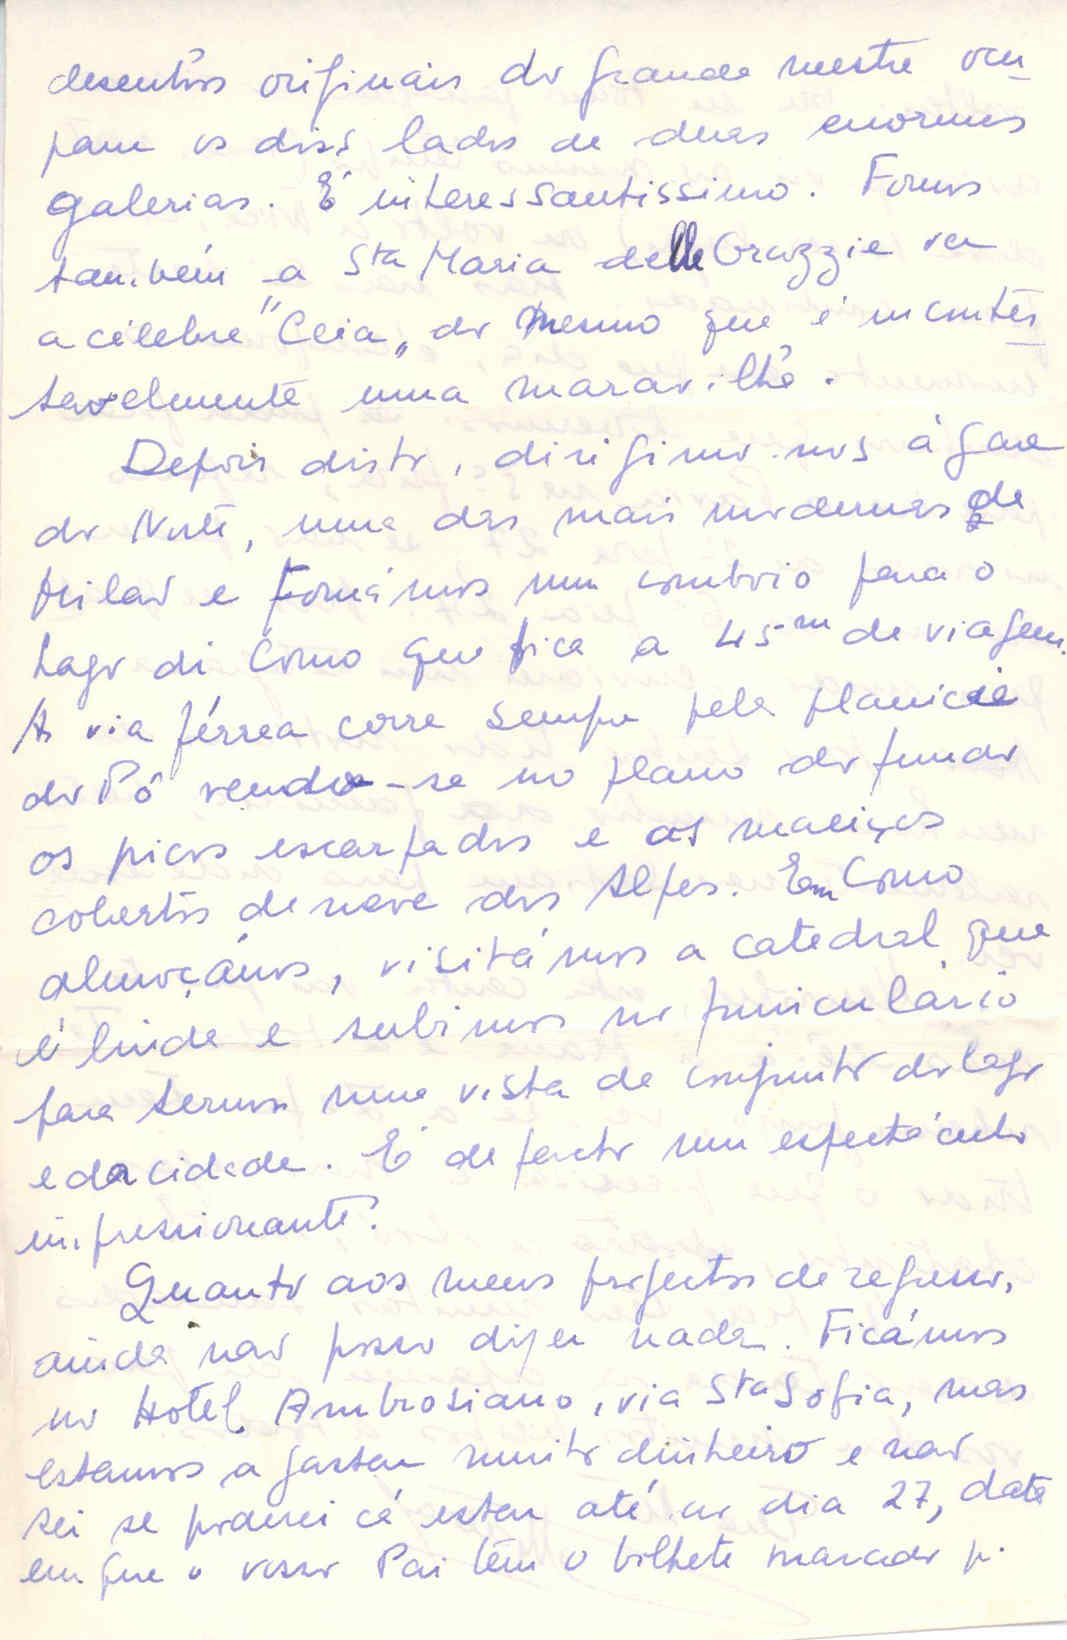 desenhos originais do grande mestre ocu
pam os dois lados de duas enormes
galerias. É interessantissimo. Fomos
também a Sta Maria delle Grazzie ver
a célebre "Ceia„ do mesmo que é incontes
tavelmente uma maravilha.
Depois disto, dirigimo-nos á gare
do Norte, uma das mais modernas de
Milão e tomámos um comboio para o
Lago di Como que fica a 45m de viagem.
A via férrea corre sempre pela planicie
do Pô vendo-se no plano do fundo
os picos escarpados e os maciços
cobertos de neve dos Alpes. Em Como
almoçámos, visitámos a catedral que
é linda e subimos no funiculário
para termos uma vista de conjunto do lago
e da cidade. É de facto um espectáculo
impressionante.
Quanto aos meus projectos de regresso,
ainda não posso dizer nada. Ficámos
no Hotel Ambrosiano, via Sta Sofia, mas
estamos a gastar muito dinheiro e não
sei se poderei cá estar até ao dia 27, data
em que o vosso Pai têm o bilhete marcado p.